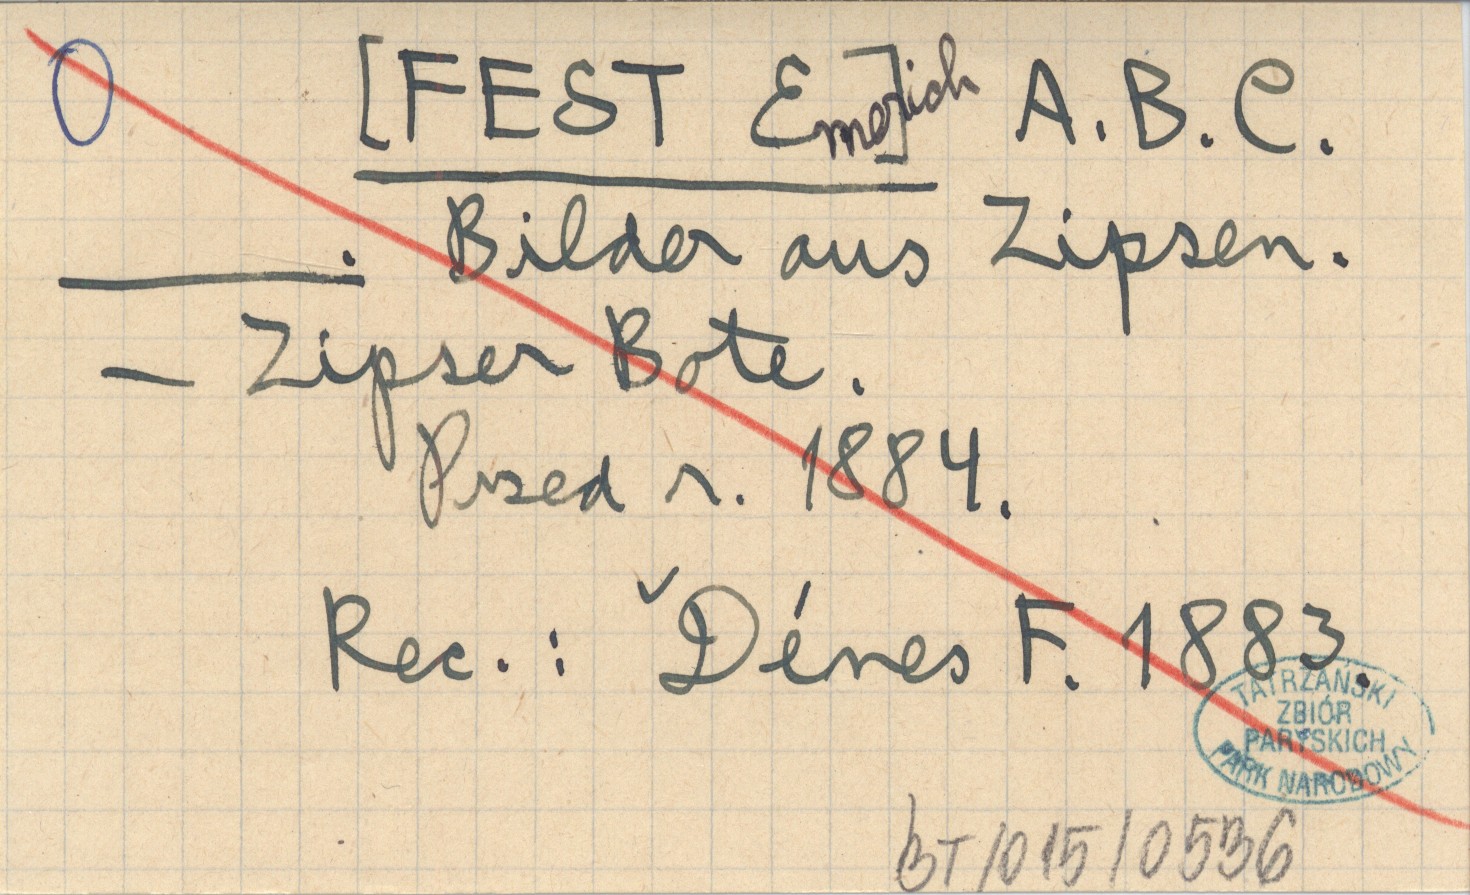 [FEST Emerich] A.B.C.
______. Bilder aus Zipsen.
— Zipser Bote.
Przed r. 1884.
Rec.: Dénes F. 1883.
TATRZAŃSKI
ZBIÓR
PARYSKICH
PARK NARODOWY
BT/015/0536